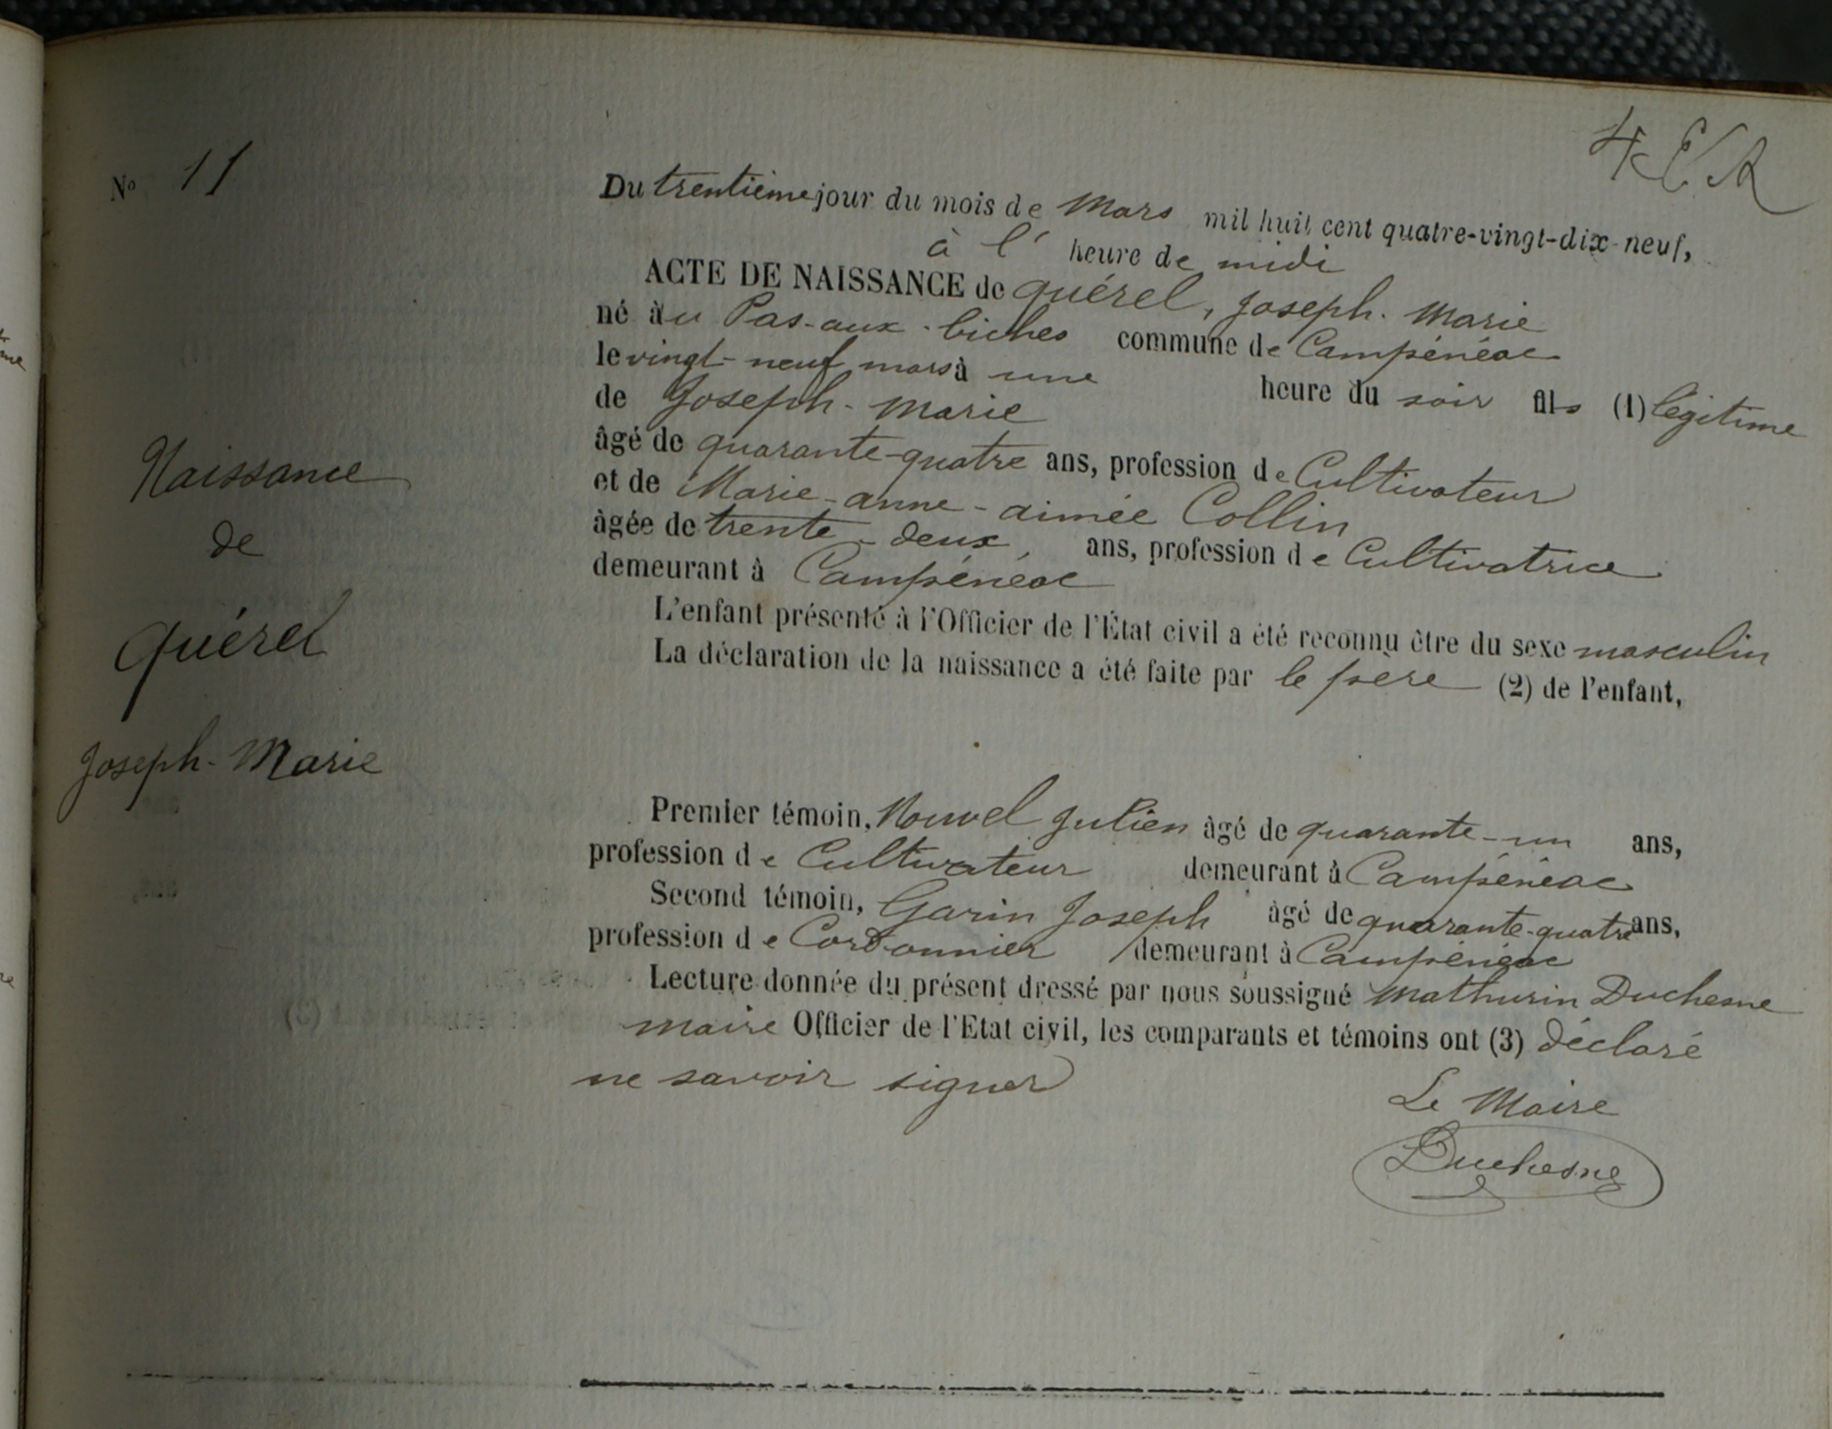 No 11
Du trentième jour du mois de Mars mil huit cent quatre-vingt-dix-neuf,
à l' heure de midi
ACTE DE NAISSANCE de Quérel, Joseph. Marie
né au Pas-aux-biches commune de Campénéac
le vingt-neuf mars à une heure du soir fils (1) légitime
de Joseph-Marie
âgé de quarante-quatre ans, profession de Cultivateur
et de Marie-anne-aimée Collin
âgée de trente-deux, ans, profession de Cultivatrice
demeurant à Campénéac
L'enfant présenté à l'Officier de l'État civil a été reconnu être du sexe masculin
La déclaration de la naissance a été faite par le père (2) de l'enfant,
Naissance
de
Quérel
Joseph-Marie
Premier témoin, Nouvel Julien âgé de quarante-un ans,
profession de Cultivateur demeurant à Campénéac
Second témoin, Garin Joseph âgé de quarante-quatre ans,
profession de Cordonnier demeurant à Campénéac
Lecture donnée du présent dressé par nous soussigné Mathurin Duchesne
maire Officier de l'Etat civil, les comparants et témoins ont (3) déclaré
ne savoir signer
Le Maire
Duchesne